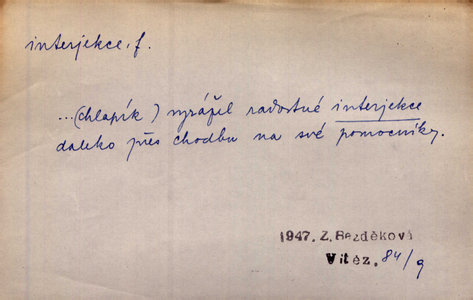 interjekce, f.
...(chlapík) vyrážel radostné interjekce
daleko přes chodbu na své pomocníky.
1947. Z. Bezděková
Vítěz. 84/9